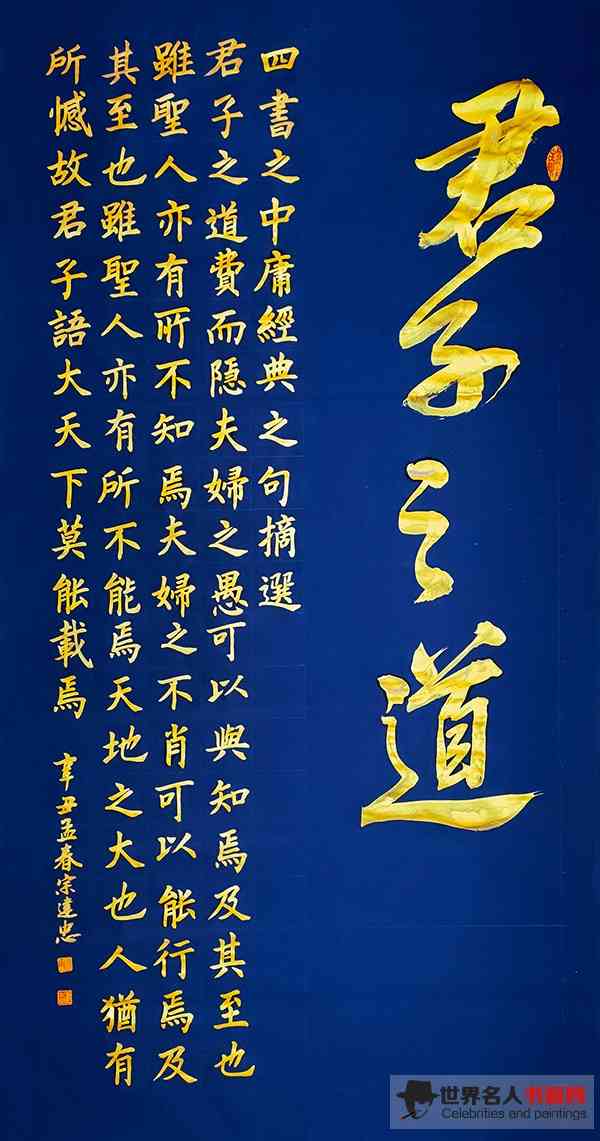 君子之道
四書之中庸經典之句摘選
君子之道費而隱夫婦之愚可以與知焉及其至也
雖聖人亦有所不知焉夫婦之不肖可以能行焉及
其至也雖聖人亦有所不能焉天地之大也人猶有
所憾故君子語大天下莫能載焉
辛丑孟春宗達忠
世界名人书画网
Celebrities and paintings